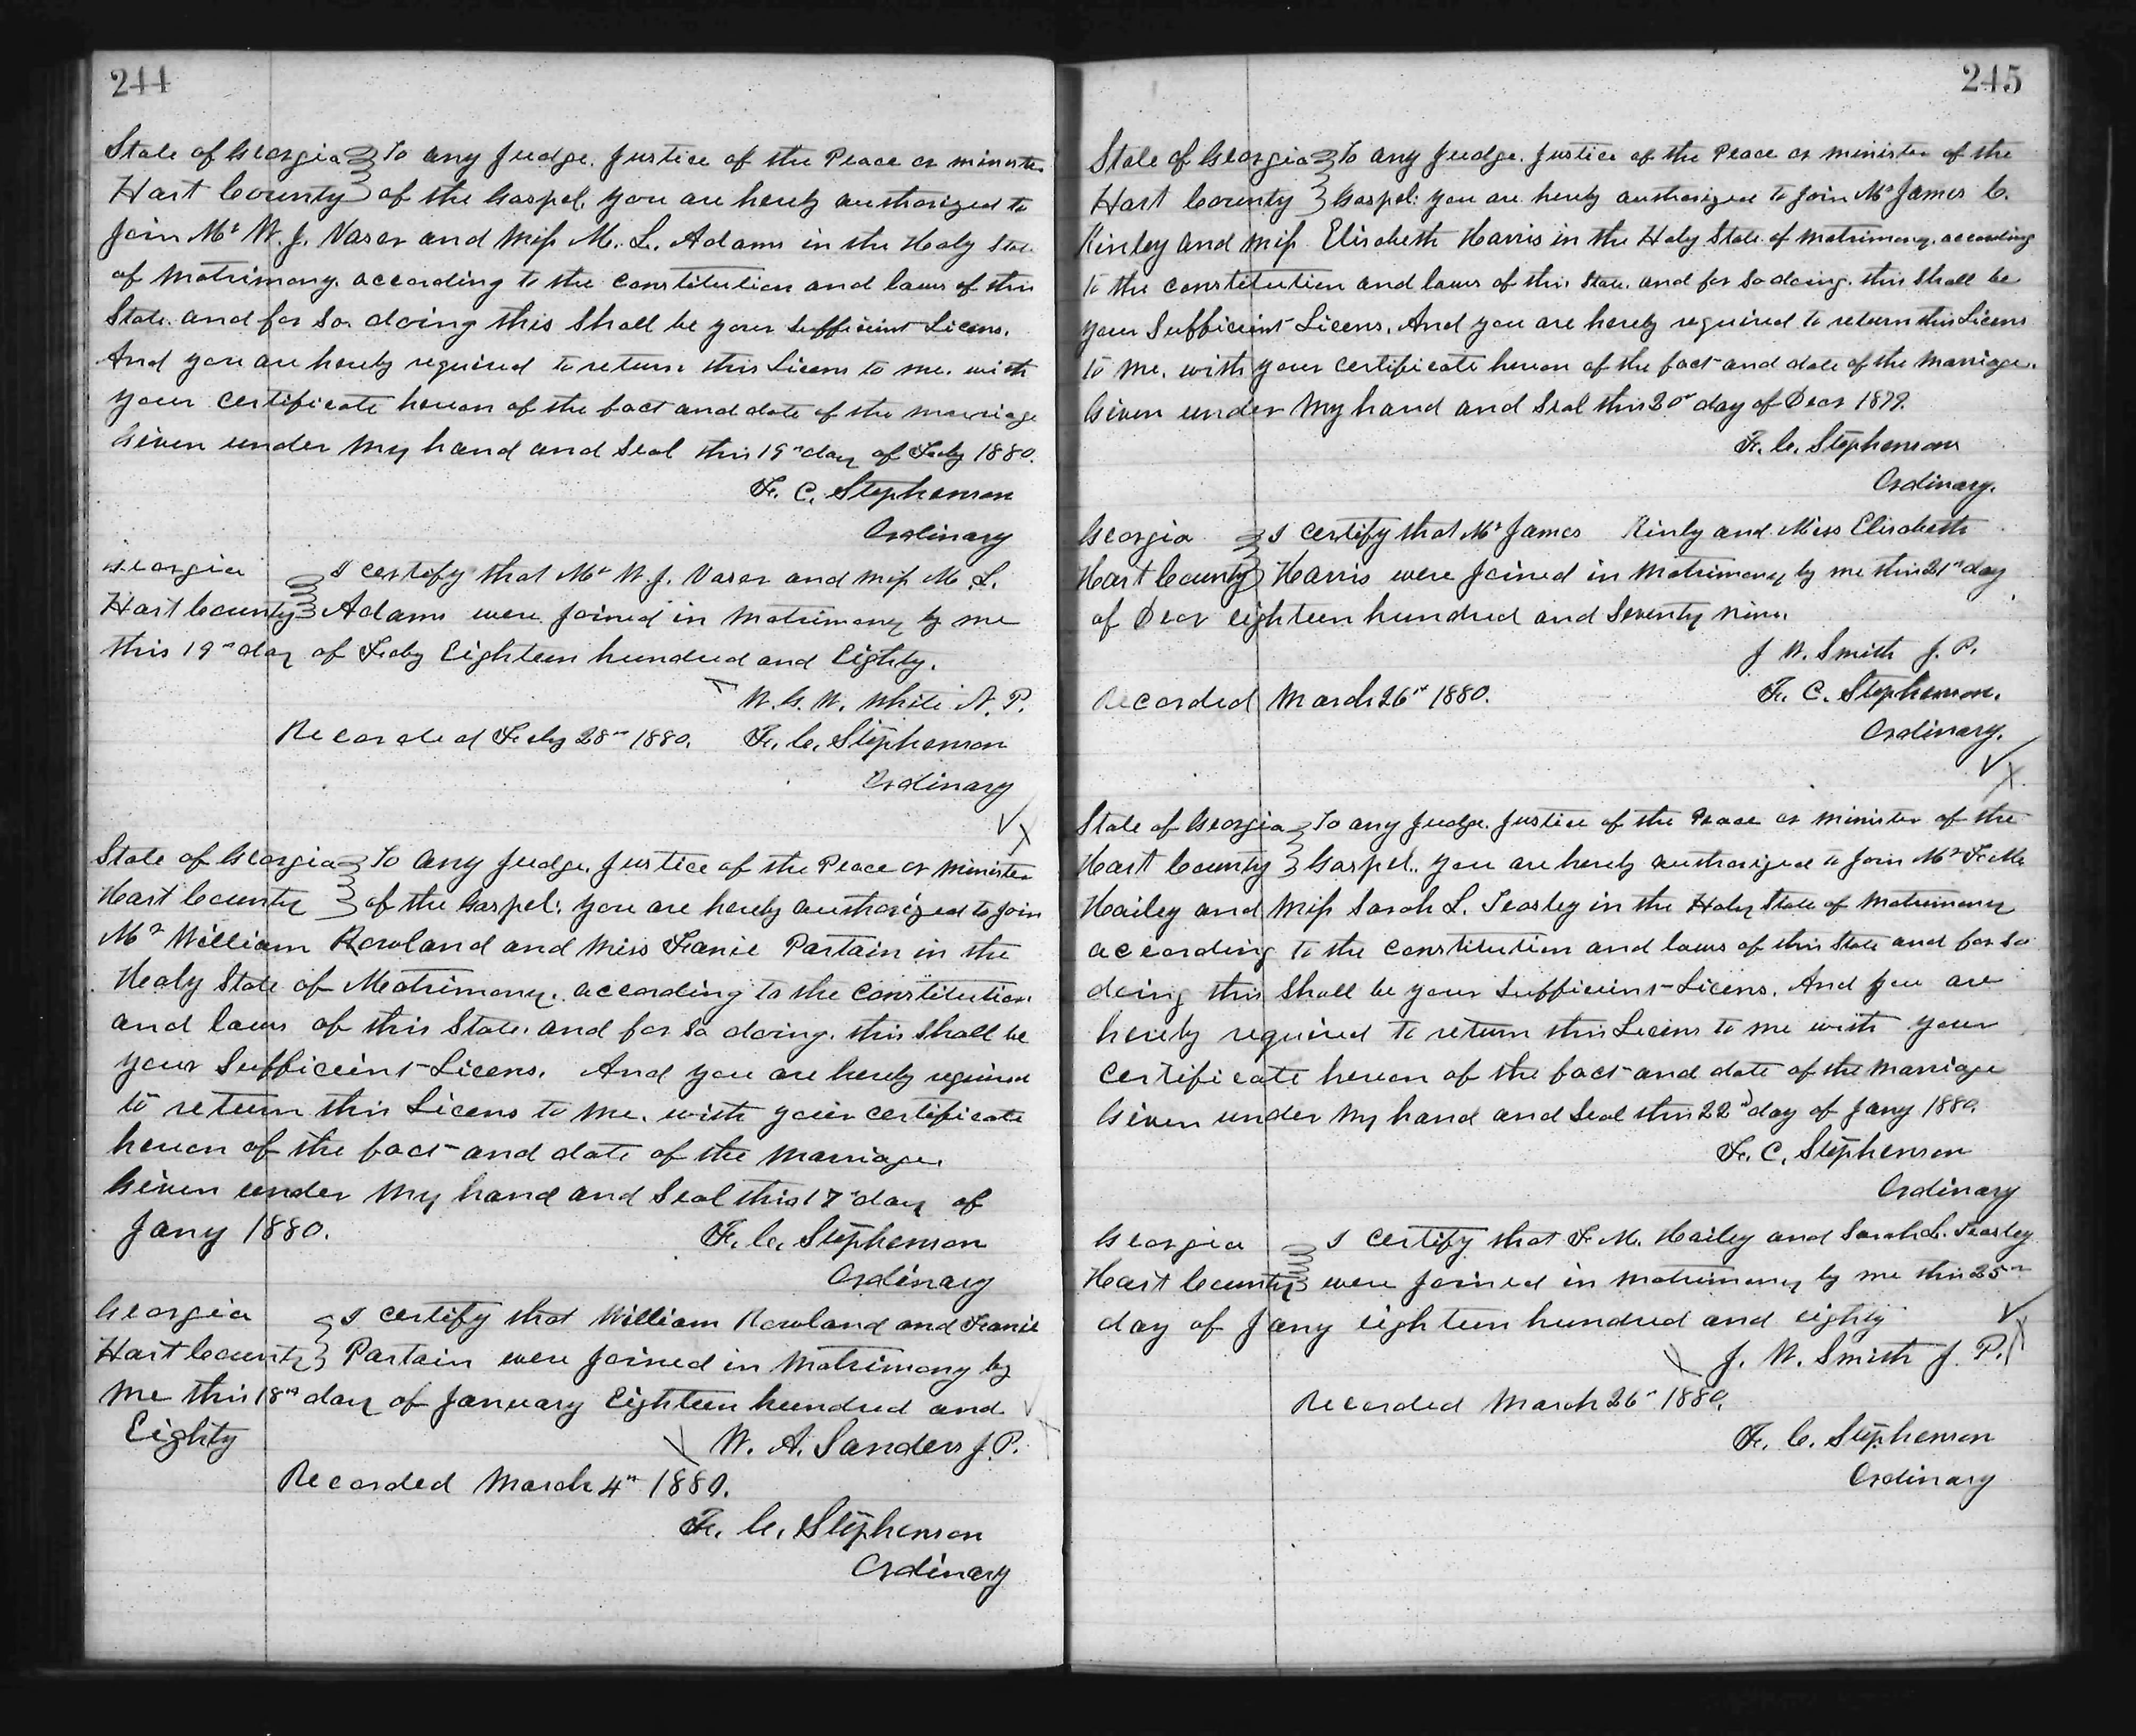 244
State of Georgia To any Judge. Justice of the Peace or minister
Hart County of the Gospel, you are hereby authorized to
Join Mr W. J. Vaser and Miss M. L. Adams in the Holy State
of Matrimony. according to the constitution and laws of this
State. and for so doing this Shall be your sufficient Licens.
And you are hereby required to return this Licens to me. with
your certificate hereon of the fact and date of the marriage
Given under my hand and Seal this 19th day of Feby 1880.
F. C. Stephenson
Ordinary
Georgia I certify that Mr W. J. Vaser and Miss M. L.
Hart County Adams were joined in Matrimony by me
this 19th day of Feby Eighteen hundred and Eighty.
W. G. W. White N. P.
Recorded Feby 28th 1880. F. C. Stephenson
Ordinary
State of Georgia To any Judge. Justice of the Peace or Minister
Hart County of the Gospel: you are hereby authorized to join
Mr William Rowland and Miss Franie Partain in the
Holy State of Matrimony. according to the Constitution
and laws of this State. and for so doing. this Shall be
your Sufficient Licens. And you are hereby required
to return this Licens to me. with your certificate
hereon of the fact and date of the marriage.
Given under my hand and Seal this 17th day of
Jany 1880. F. C. Stephenson
Ordinary
Georgia I certify that William Rowland and Franie
Hart County Partain were joined in Matrimony by
me this 18th day of January Eighteen hundred and
Eighty W. A. Sanders J. P.
Recorded March 4th 1880.
F. C. Stephenson
Ordinary
245
State of Georgia To any Judge. Justice of the Peace or minister of the
Hart County Gospel: you are hereby authorized to Join Mr James C.
Kinley and Miss Elisabeth Harris in the Holy State of Matrimony. according
to the constitution and laws of this State. and for so doing. this shall be
your Sufficient Licens. And you are hereby required to return this Licens
to me. with your certificate hereon of the fact and date of the marriage.
Given under my hand and Seal this 20th day of Decr 1879.
F. C. Stephenson
Ordinary.
Georgia I certify that Mr James Kinly and Miss Elisabeth
Hart County Harris were joined in Matrimony by me this 21st day
of Decr eighteen hundred and Seventy nine.
J W. Smith J. P.
Recorded March 26th 1880. F. C. Stephenson.
Ordinary.
State of Georgia To any Judge. Justice of the Peace or minister of the
Hart County Gospel. you are hereby authorized to Join Mr F. M.
Hailey and Miss Sarah L. Teasley in the Holy State of Matrimony
according to the constitution and laws of this State and for so
doing this Shall be your sufficient Licens. And you are
hereby required to return this Licens to me with your
certificate hereon of the fact and date of the marriage
Given under my hand and Seal this 22d day of Jany 1880.
F. C. Stephenson
Ordinary
Georgia I certify that F. M. Hailey and Sarah L. Teasley
Hart County were joined in Matrimony by me this 25th
day of Jany eighteen hundred and eighty
J. W. Smith J. P.
Recorded March 26th 1880.
F. C. Stephenson
Ordinary